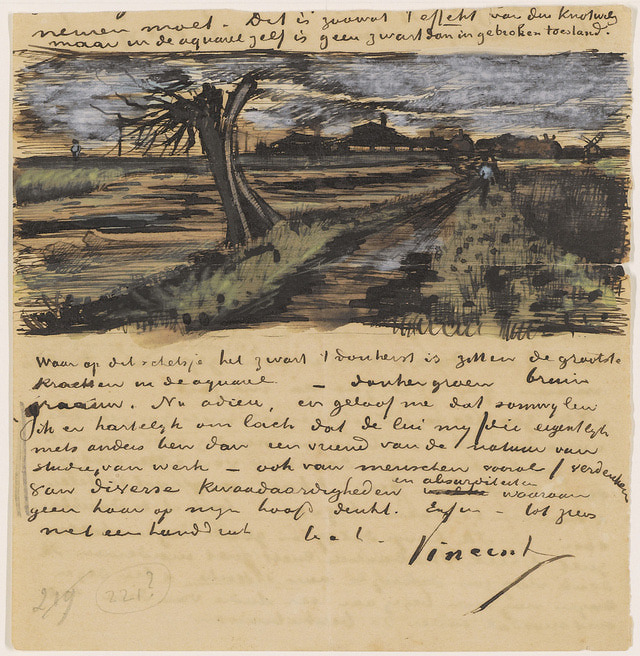 nemen moet. Dit is zoowat 't effekt van den knotwilg
maar in de aquarel zelf is geen zwart dan in gebroken toestand.
Waar op dit schetsje het zwart 't donkerst is zitten de grootste
krachten in de aquarel – donkergroen bruin
graauw. Nu adieu, en geloof me dat somwijlen
ik er hartelijk om lach dat de lui mij die eigentlijk
niets anders ben dan een vriend van de natuur van
studie, van werk – ook van menschen vooral / verdenken
van diverse kwaadaardigheden en absurditeiten waaraan
geen haar op mijn hoofd denkt. Enfin – tot ziens
met een handdruk
Vincent
219 221?